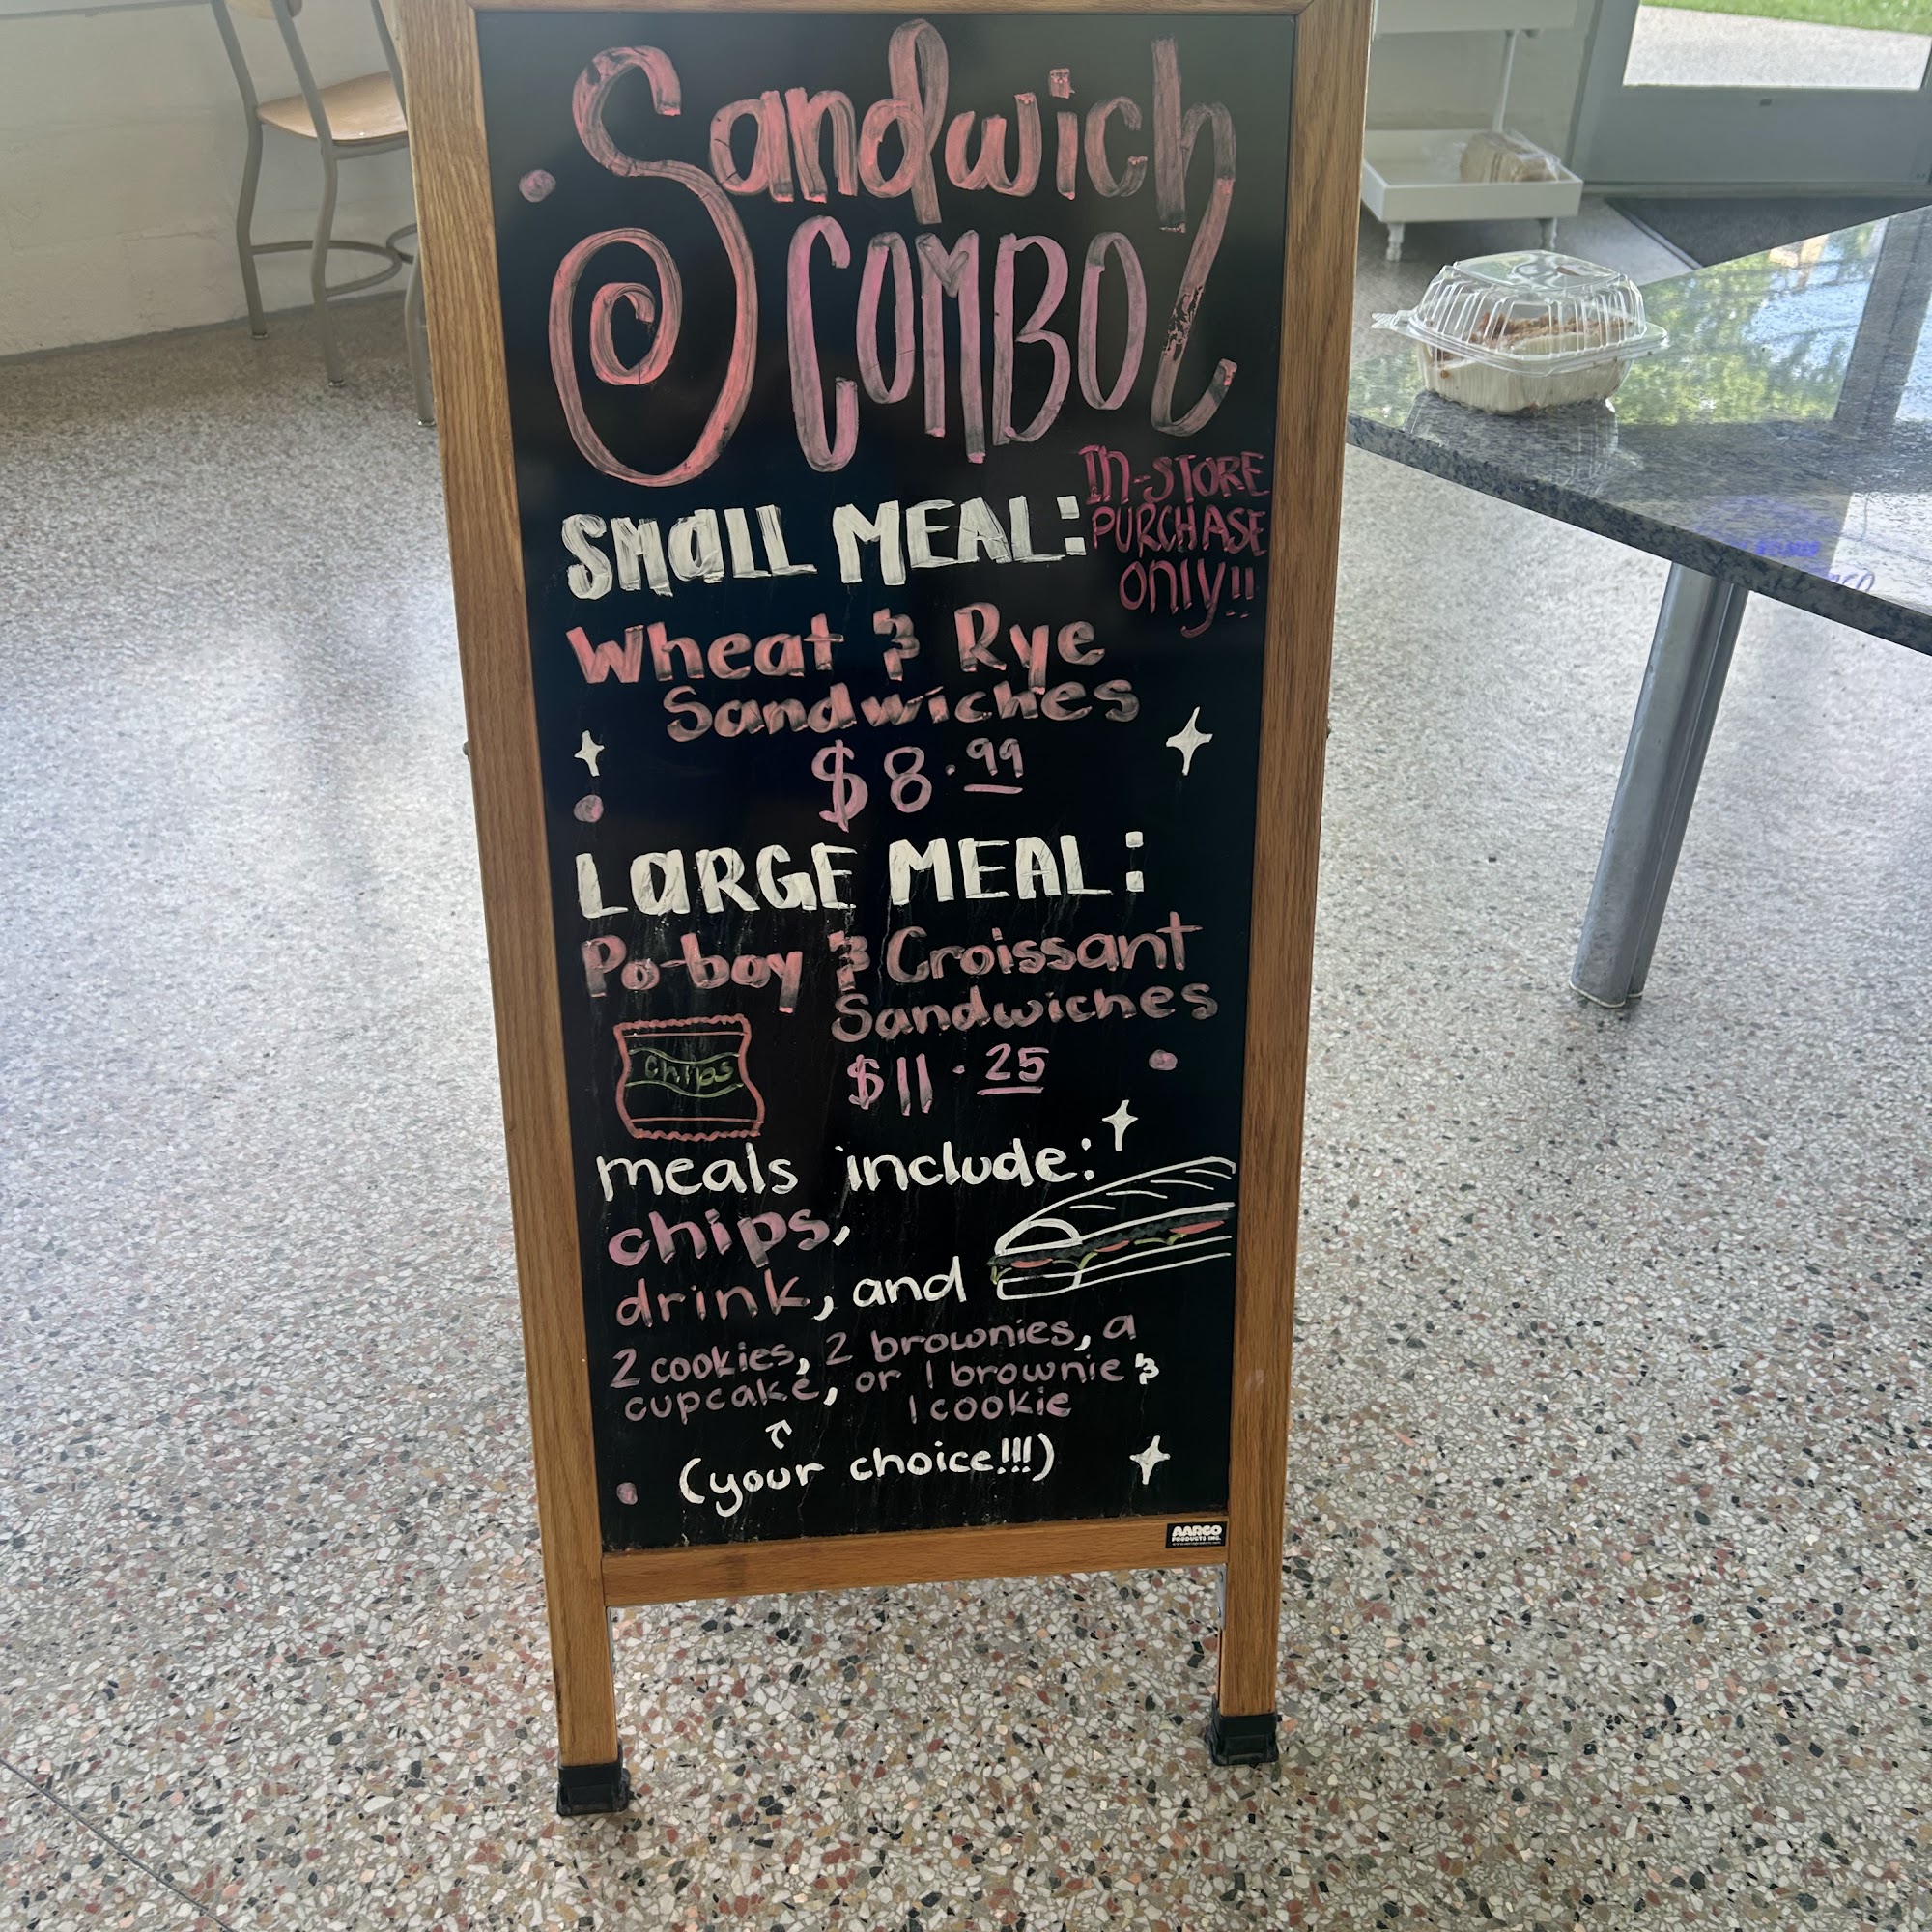 Sandwich
COMBO
IN-STORE
PURCHASE
only!!
SMall MEAL:
Wheat & Rye
Sandwiches
$8.99
LaRGE MEAL:
Po-boy & Croissant
Sandwiches
$11.25
chips
meals include:
chips,
drink, and
2 cookies, 2 brownies, a
cupcake, or 1 brownie &
1 cookie
(your choice!!!)
AARCO
PRODUCTS INC.